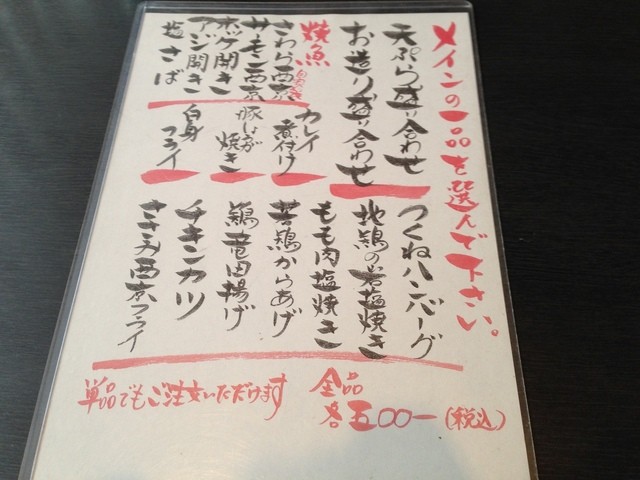 メインの一品を選んで下さい。
天ぷら盛り合わせ
お造り盛り合わせ
焼魚
さわら西京
サーモン西京
ホッケ開き
アジ開き
塩さば
カレイ煮付け
豚しょうが焼き
白身フライ
つくねハンバーグ
地鶏の岩塩焼き
もも肉塩焼き
若鶏からあげ
鶏竜田揚げ
チキンカツ
ささみ西京フライ
単品でもご注文いただけます
全品
各五00ー(税込)